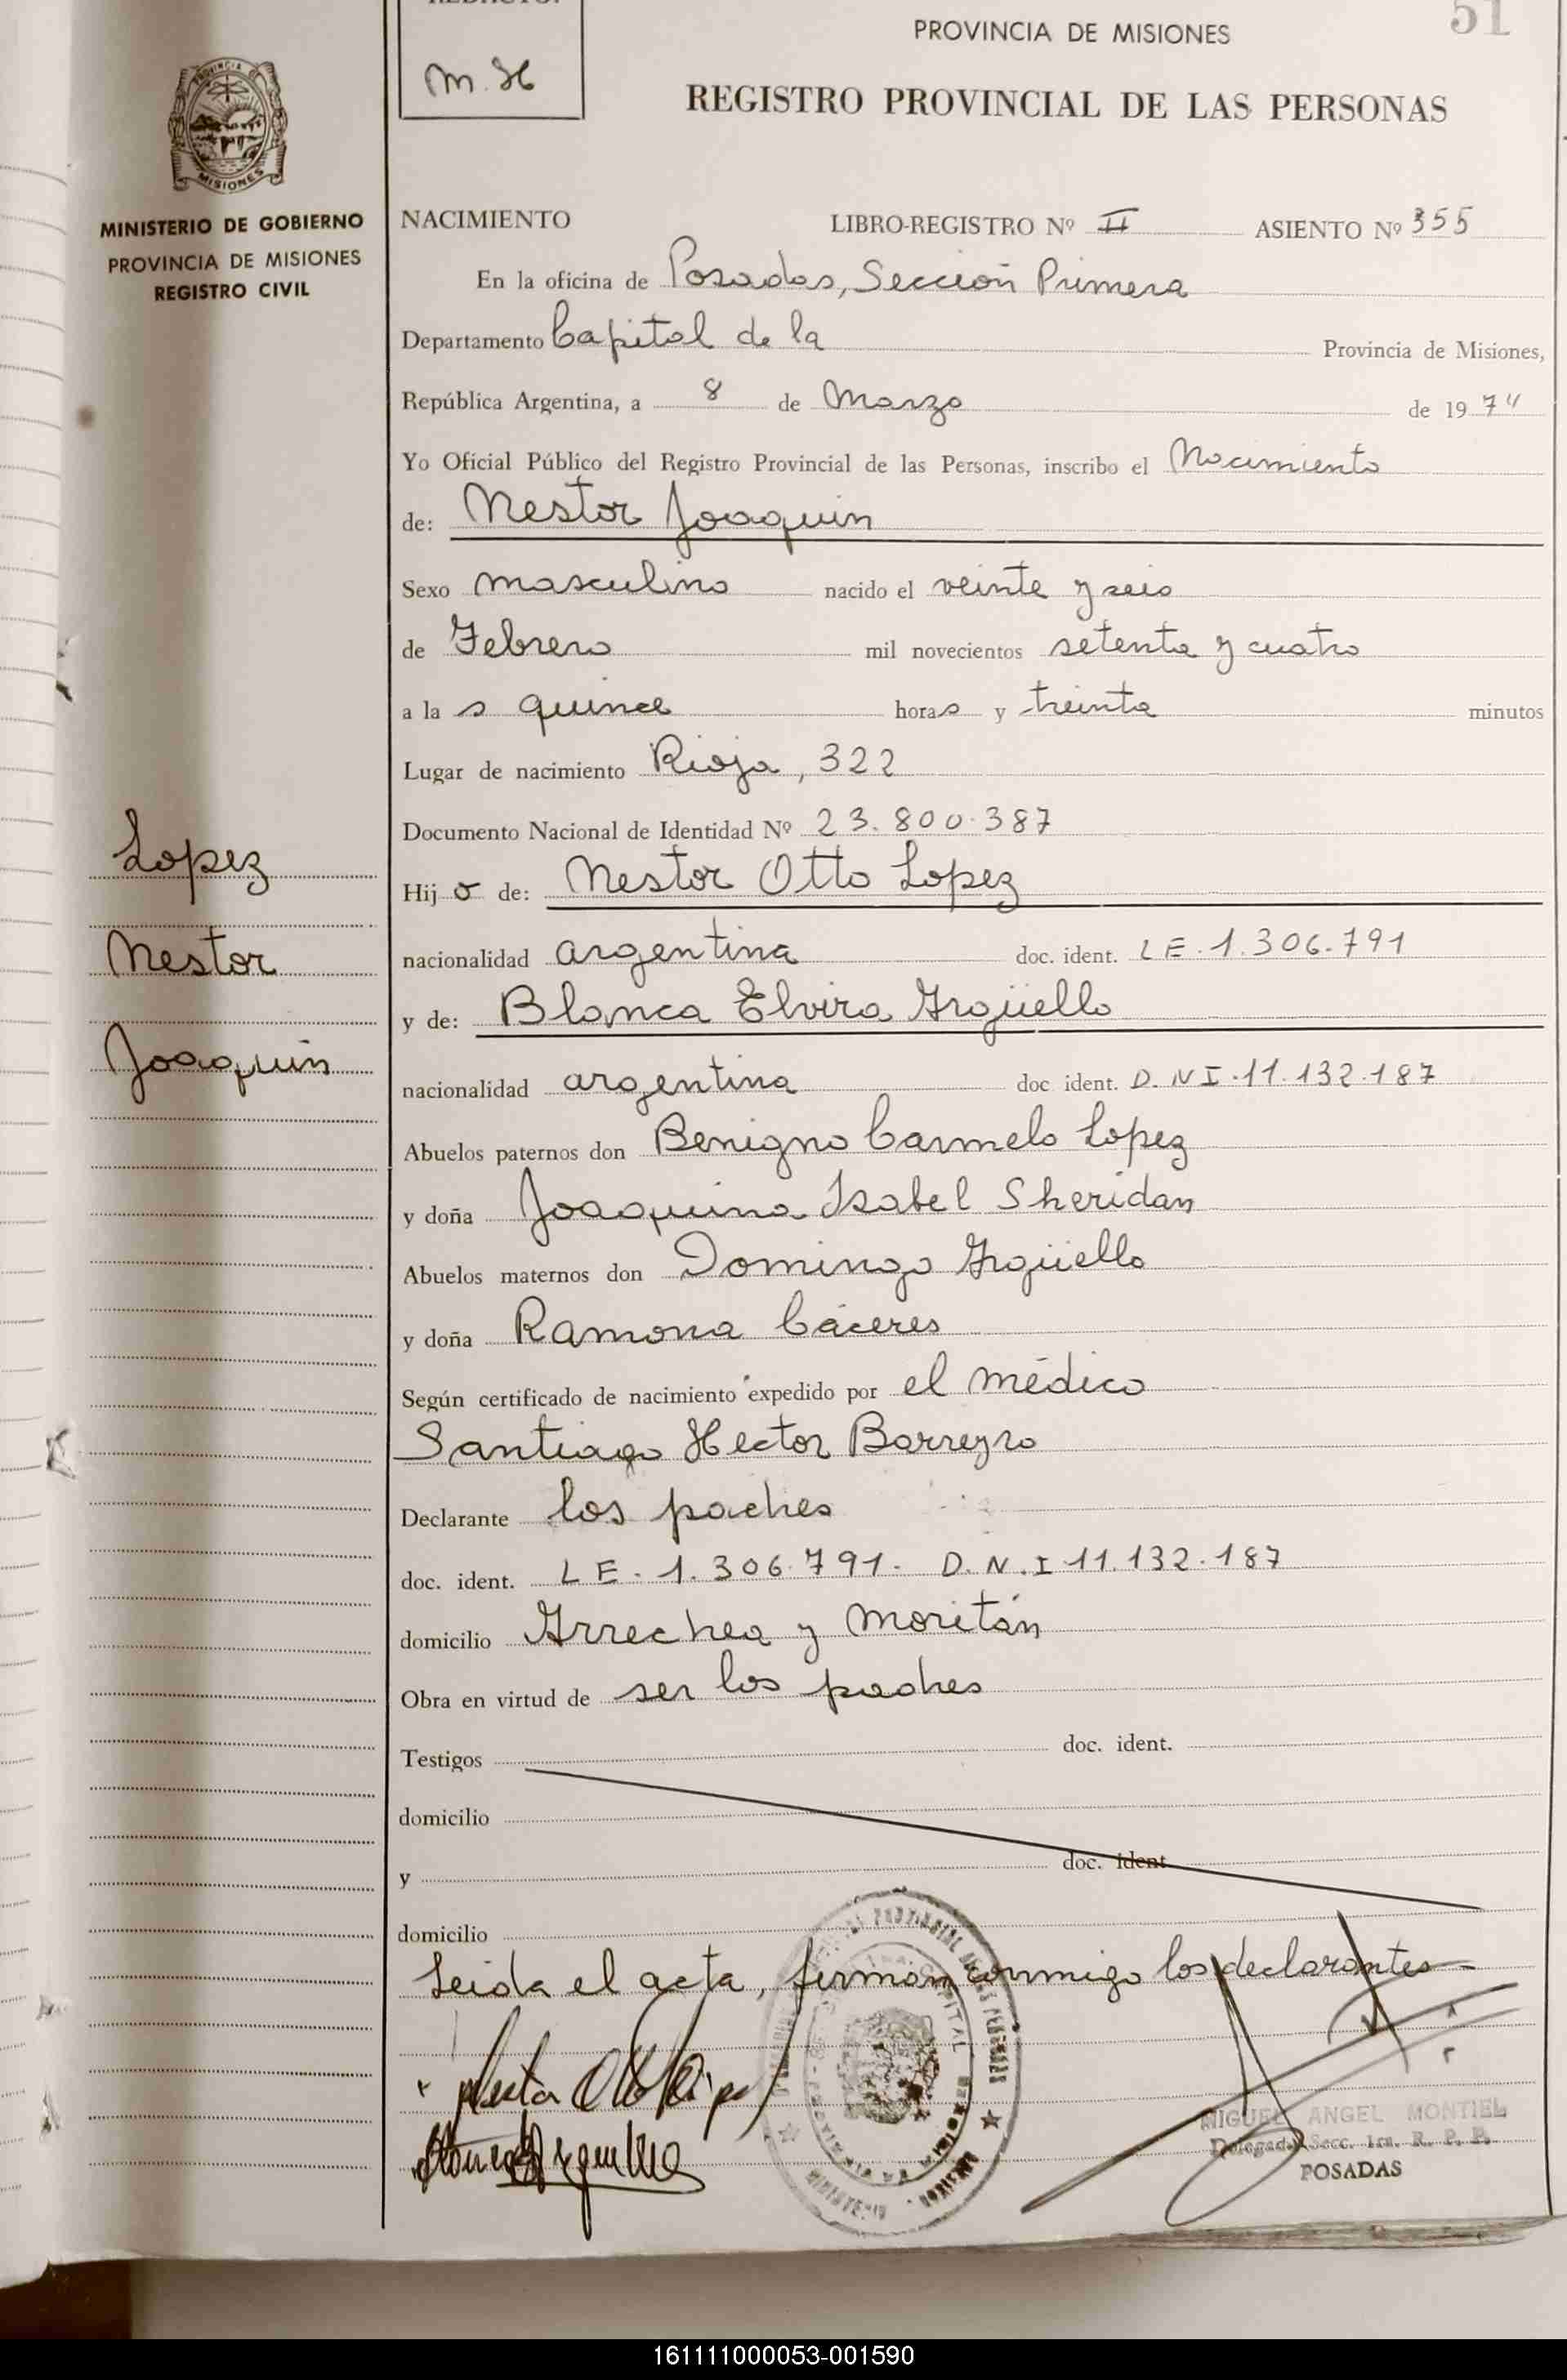 REDACTO:
M. H
PROVINCIA DE MISIONES
51
REGISTRO PROVINCIAL DE LAS PERSONAS
MISIONES
MINISTERIO DE GOBIERNO
PROVINCIA DE MISIONES
REGISTRO CIVIL
NACIMIENTO LIBRO-REGISTRO Nº II ASIENTO Nº 355
En la oficina de Posadas, Sección Primera
Departamento Capital de la Provincia de Misiones,
República Argentina, a 8 de Marzo de 1974
Yo Oficial Público del Registro Provincial de las Personas, inscribo el Nacimiento
de: Nestor Joaquin
Sexo masculino nacido el veinte y seis
de Febrero mil novecientos setenta y cuatro
a la s quince horas y treinta minutos
Lugar de nacimiento Rioja, 322
Documento Nacional de Identidad Nº 23.800.387
Lopez
Nestor
Joaquin
Hijo de: Nestor Otto Lopez
nacionalidad argentina doc. ident. LE. 1.306.791
y de: Blanca Elvira Argüello
nacionalidad argentina doc ident. D.NI.11.132.187
Abuelos paternos don Benigno Carmelo Lopez
y doña Joaquina Isabel Sheridan
Abuelos maternos don Domingo Argüello
y doña Ramona Cáceres
Según certificado de nacimiento expedido por el médico
Santiago Hector Barreyro
Declarante los padres
doc. ident. LE. 1.306.791. D.N.I 11.132.187
domicilio Arrechea y Moritán
Obra en virtud de ser los padres
Testigos doc. ident.
domicilio
y doc. ident
domicilio
Leida el acta, firman conmigo los declarantes=
MIGUEL ANGEL MONTIEL
Delegado Secc. 1ra. R. P. P.
POSADAS
161111000053-001590